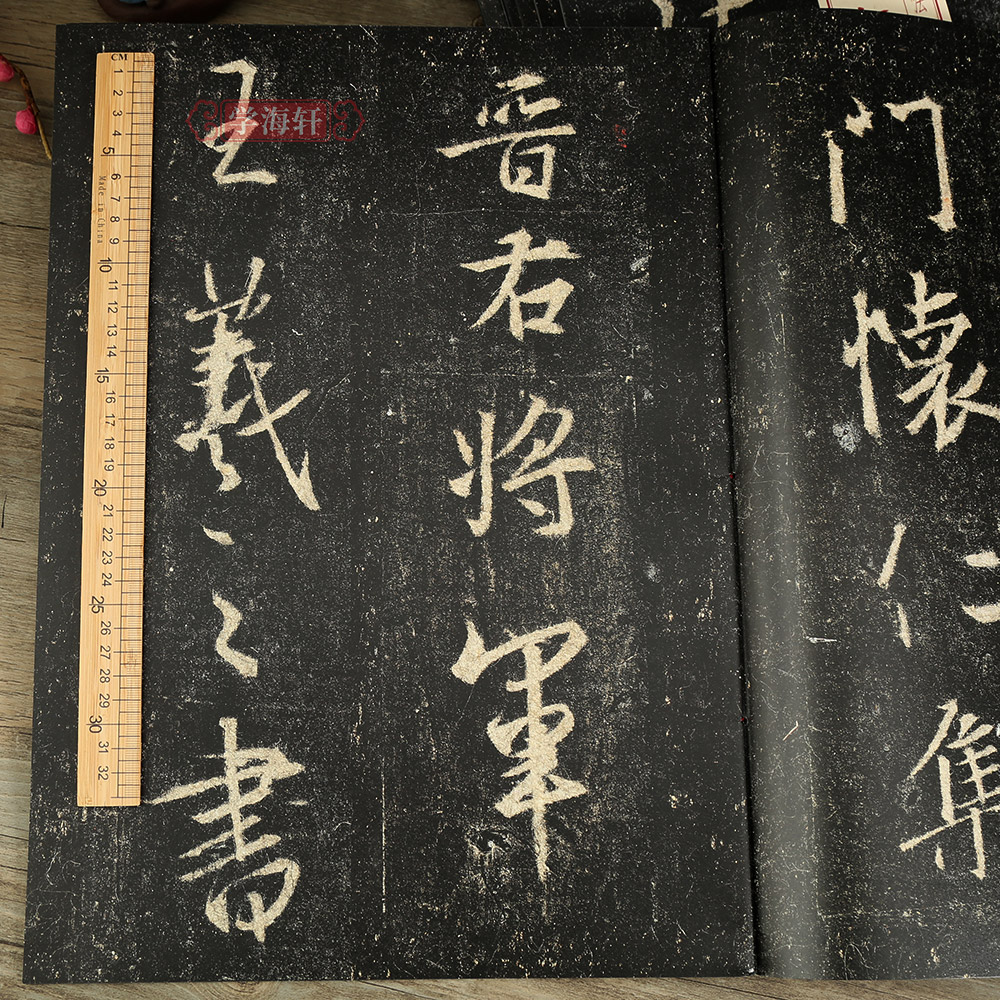 门懷仁集
晋右将軍
王羲之書
学海轩
CM
1 2 3 4 5 6 7 8 9 10 11 12 13 14 15 16 17 18 19 20 21 22 23 24 25 26 27 28 29 30 31 32
Made in China
法